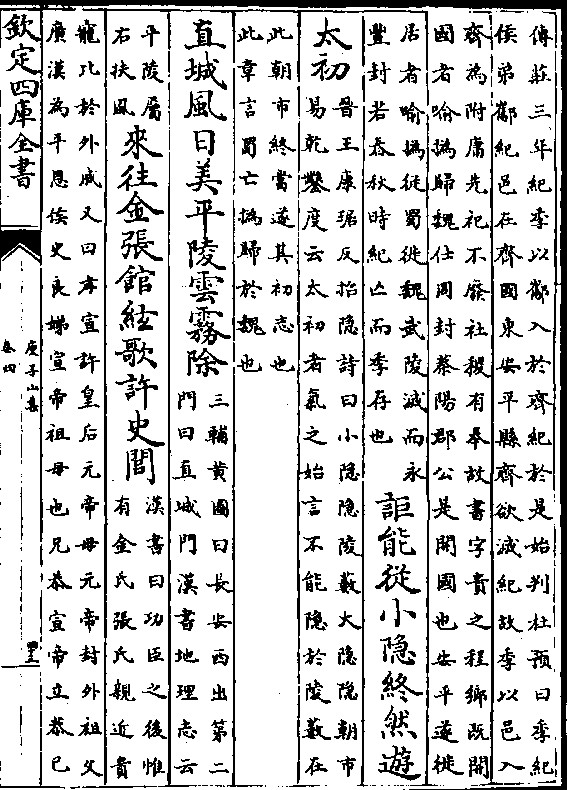 傳莊三年紀季以酅入於齊紀於是始判杜預曰季紀
侯弟酅紀邑在齊國東安平縣齊欲滅紀故季以邑入
齊為附庸先祀不廢社稷有奉故書字貴之程鄉既開
國者喻撝歸魏仕周封蔡陽郡公是開國也安平遂徙
居者喻撝從蜀徙魏武陵滅而永
豐封若春秋時紀亡而季存也
詎能從小隱終然遊
太初
晉王康琚反招隱詩曰小隱隱陵藪大隱隱朝市
易乾鑿度云太初者氣之始言不能隱於陵藪在
此朝市終當遂其初志也
此章言蜀亡撝歸於魏也
直城風日美平陵雲霧除
三輔黃圖曰長安西出第二
門曰直城門漢書地理志云
平陵屬
右扶風
來往金張館絃歌許史閭
漢書曰功臣之後惟
有金氏張氏親近貴
寵比於外戚又曰孝宣許皇后元帝母元帝封外祖父
廣漢為平恩侯史良娣宣帝祖母也兄恭宣帝立恭已
欽定四庫全書
庾子山集
卷四